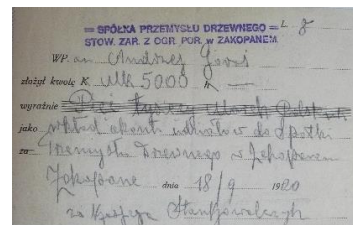 = SPÓŁKA PRZEMYSŁU DRZEWNEGO =
STOW. ZAR. Z OGR. POR. w ZAKOPANEM
WP. an Andrzej
złożył kwotę K Mk 5000 h —
wyraźnie Pięć
jako wkład a konto udziałów do Spółki
za Przemysłu Drzewnego w Zakopanem
Zakopane dnia 18/9 1920
za